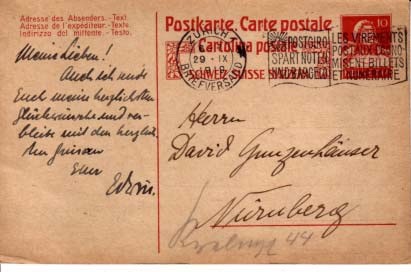 Adresse des Absenders.-Text
Adresse de l'expéditeur.-Texte.
Indirizzo del mittente.-Testo.
Postkarte. Carte postale.
Cartolina postale
SUISSE
ZÜRICH 1
29. IX
1918
BRIEFVERSAND
POSTGIRO
SPART NOTEN
UND BARGELD
LES VIREMENTS
POSTAUX ECONO-
MISENT BILLETS
ET NUMERAIRE
10
Meine Lieben!
Auch ich sende
Euch meine herzlichsten
Glückwünsche und ver-
bleibe mit den herzlich
sten Grüssen
Euer
Edwin.
Herrn
David Gunzenhäuser
Nürnberg
44